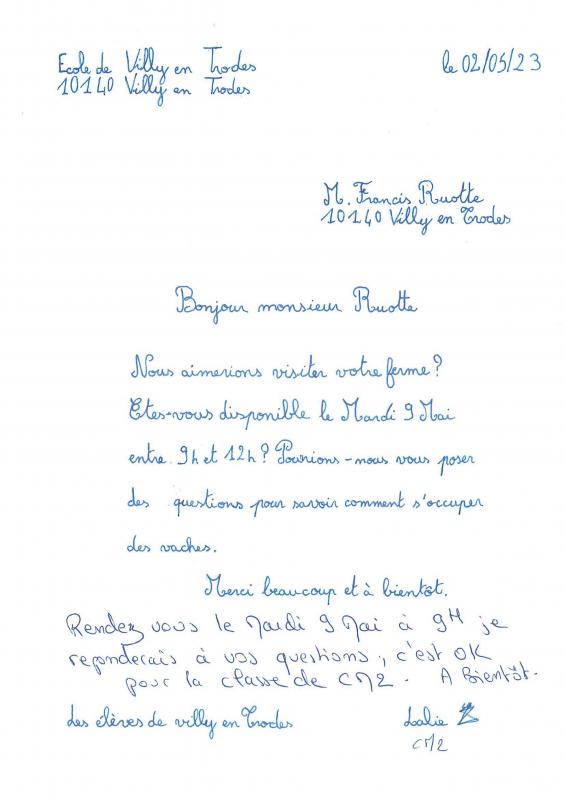 Ecole de Villy en Trodes
le 02/05/23
10140 Villy en Trodes
M. Francis Ruotte
10140 Villy en Trodes
Bonjour monsieur Ruotte
Nous aimerions visiter votre ferme?
Etes-vous disponible le Mardi 9 Mai
entre 9h et 12h? Pourrions-nous vous poser
des questions pour savoir comment s'occuper
des vaches.
Merci beaucoup et à bientôt.
Rendez vous le Mardi 9 Mai à 9H je
reponderais à vos questions, c'est OK
pour la classe de CM2. A Bientôt.
Les élèves de villy en Trodes
Lalie
CM2